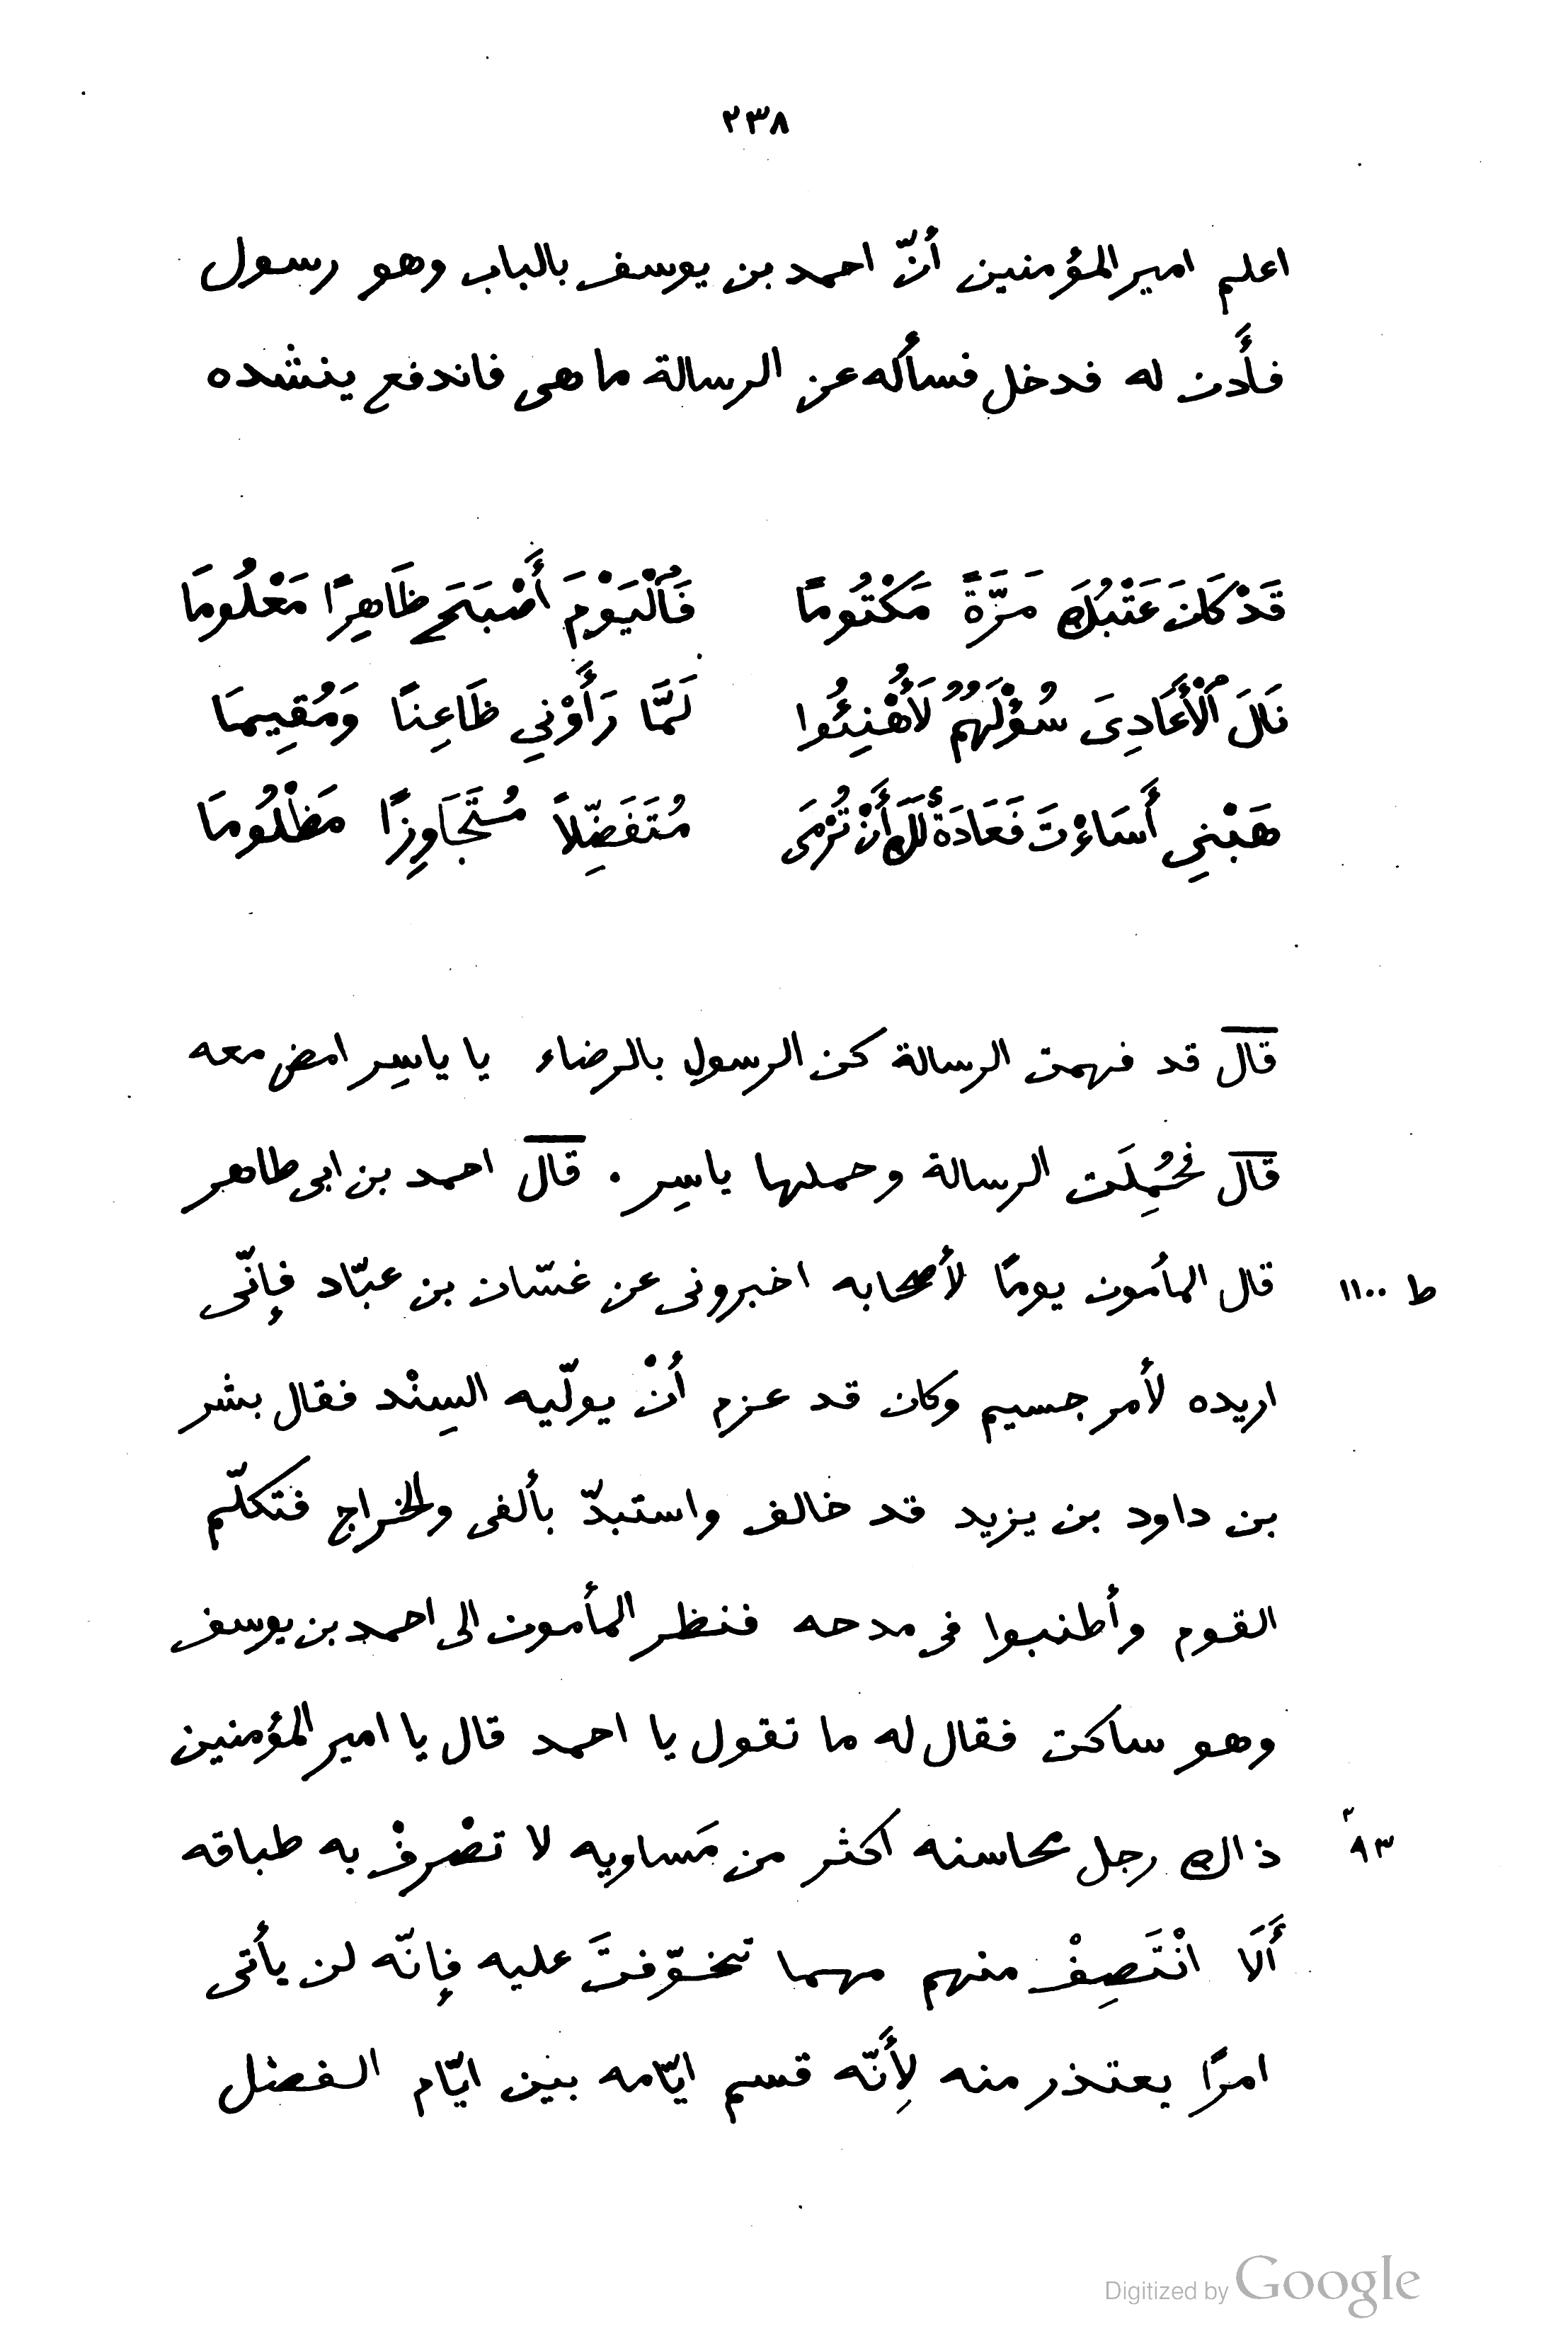 ٢٣٨
اعلم امير المؤمنين أنّ احمد بن يوسف بالباب وهو رسول
فأَدن له فدخل فسأله عن الرسالة ما هى فاندفع ينشده
قَدْ كَانَ عَتْبُكَ مَرَّةً مَكْتُومًا فَٱلْيَوْمَ أَصْبَحَ ظَاهِرًا مَعْلُومَا
نَالَ ٱلْأَعَادِىَ سُؤْلَهُمْ لَأُهْنِئُوا لَمَّا رَأَوْنِي ظَاعِنًا وَمُقِيمَا
هَبْنِي أَسَاءْتَ فَعَادَةٌ لَكَ أَنْ تُرْمَى مُتَفَضِّلاً مُتَجَاوِزًا مَظْلُومَا
قال قد فهمت الرسالة كن الرسول بالرضاء يا ياسِر امض معه
قال فحُمِلَت الرسالة وحملها ياسِر . قال احمد بن ابى طاهر
قال المأمون يومًا لأصحابه اخبرونى عن غسّان بن عبّاد فإنّى
ط ١١٠٠
اريده لأمر جسيم وكان قد عزم أنْ يولّيه السِنْد فقال بشر
بن داود بن يزيد قد خالف واستبدّ بألفى والخراج فتكلّم
القوم وأطنبوا فى مدحه فنظر المأمون الى احمد بن يوسف
وهو ساكت فقال له ما تقول يا احمد قال يا امير المؤمنين
ذاك رجل محاسنه اكثر من مَساويه لا تصْرفْ به طباقه
٩٣
أَلَا انْتَصِفْ منهم مهما تخوّفتَ عليه فإنّه لن يأتى
امرًا يعتذر منه لِأَنّه قسم ايّامه بين ايّام الفضل
Digitized by Google